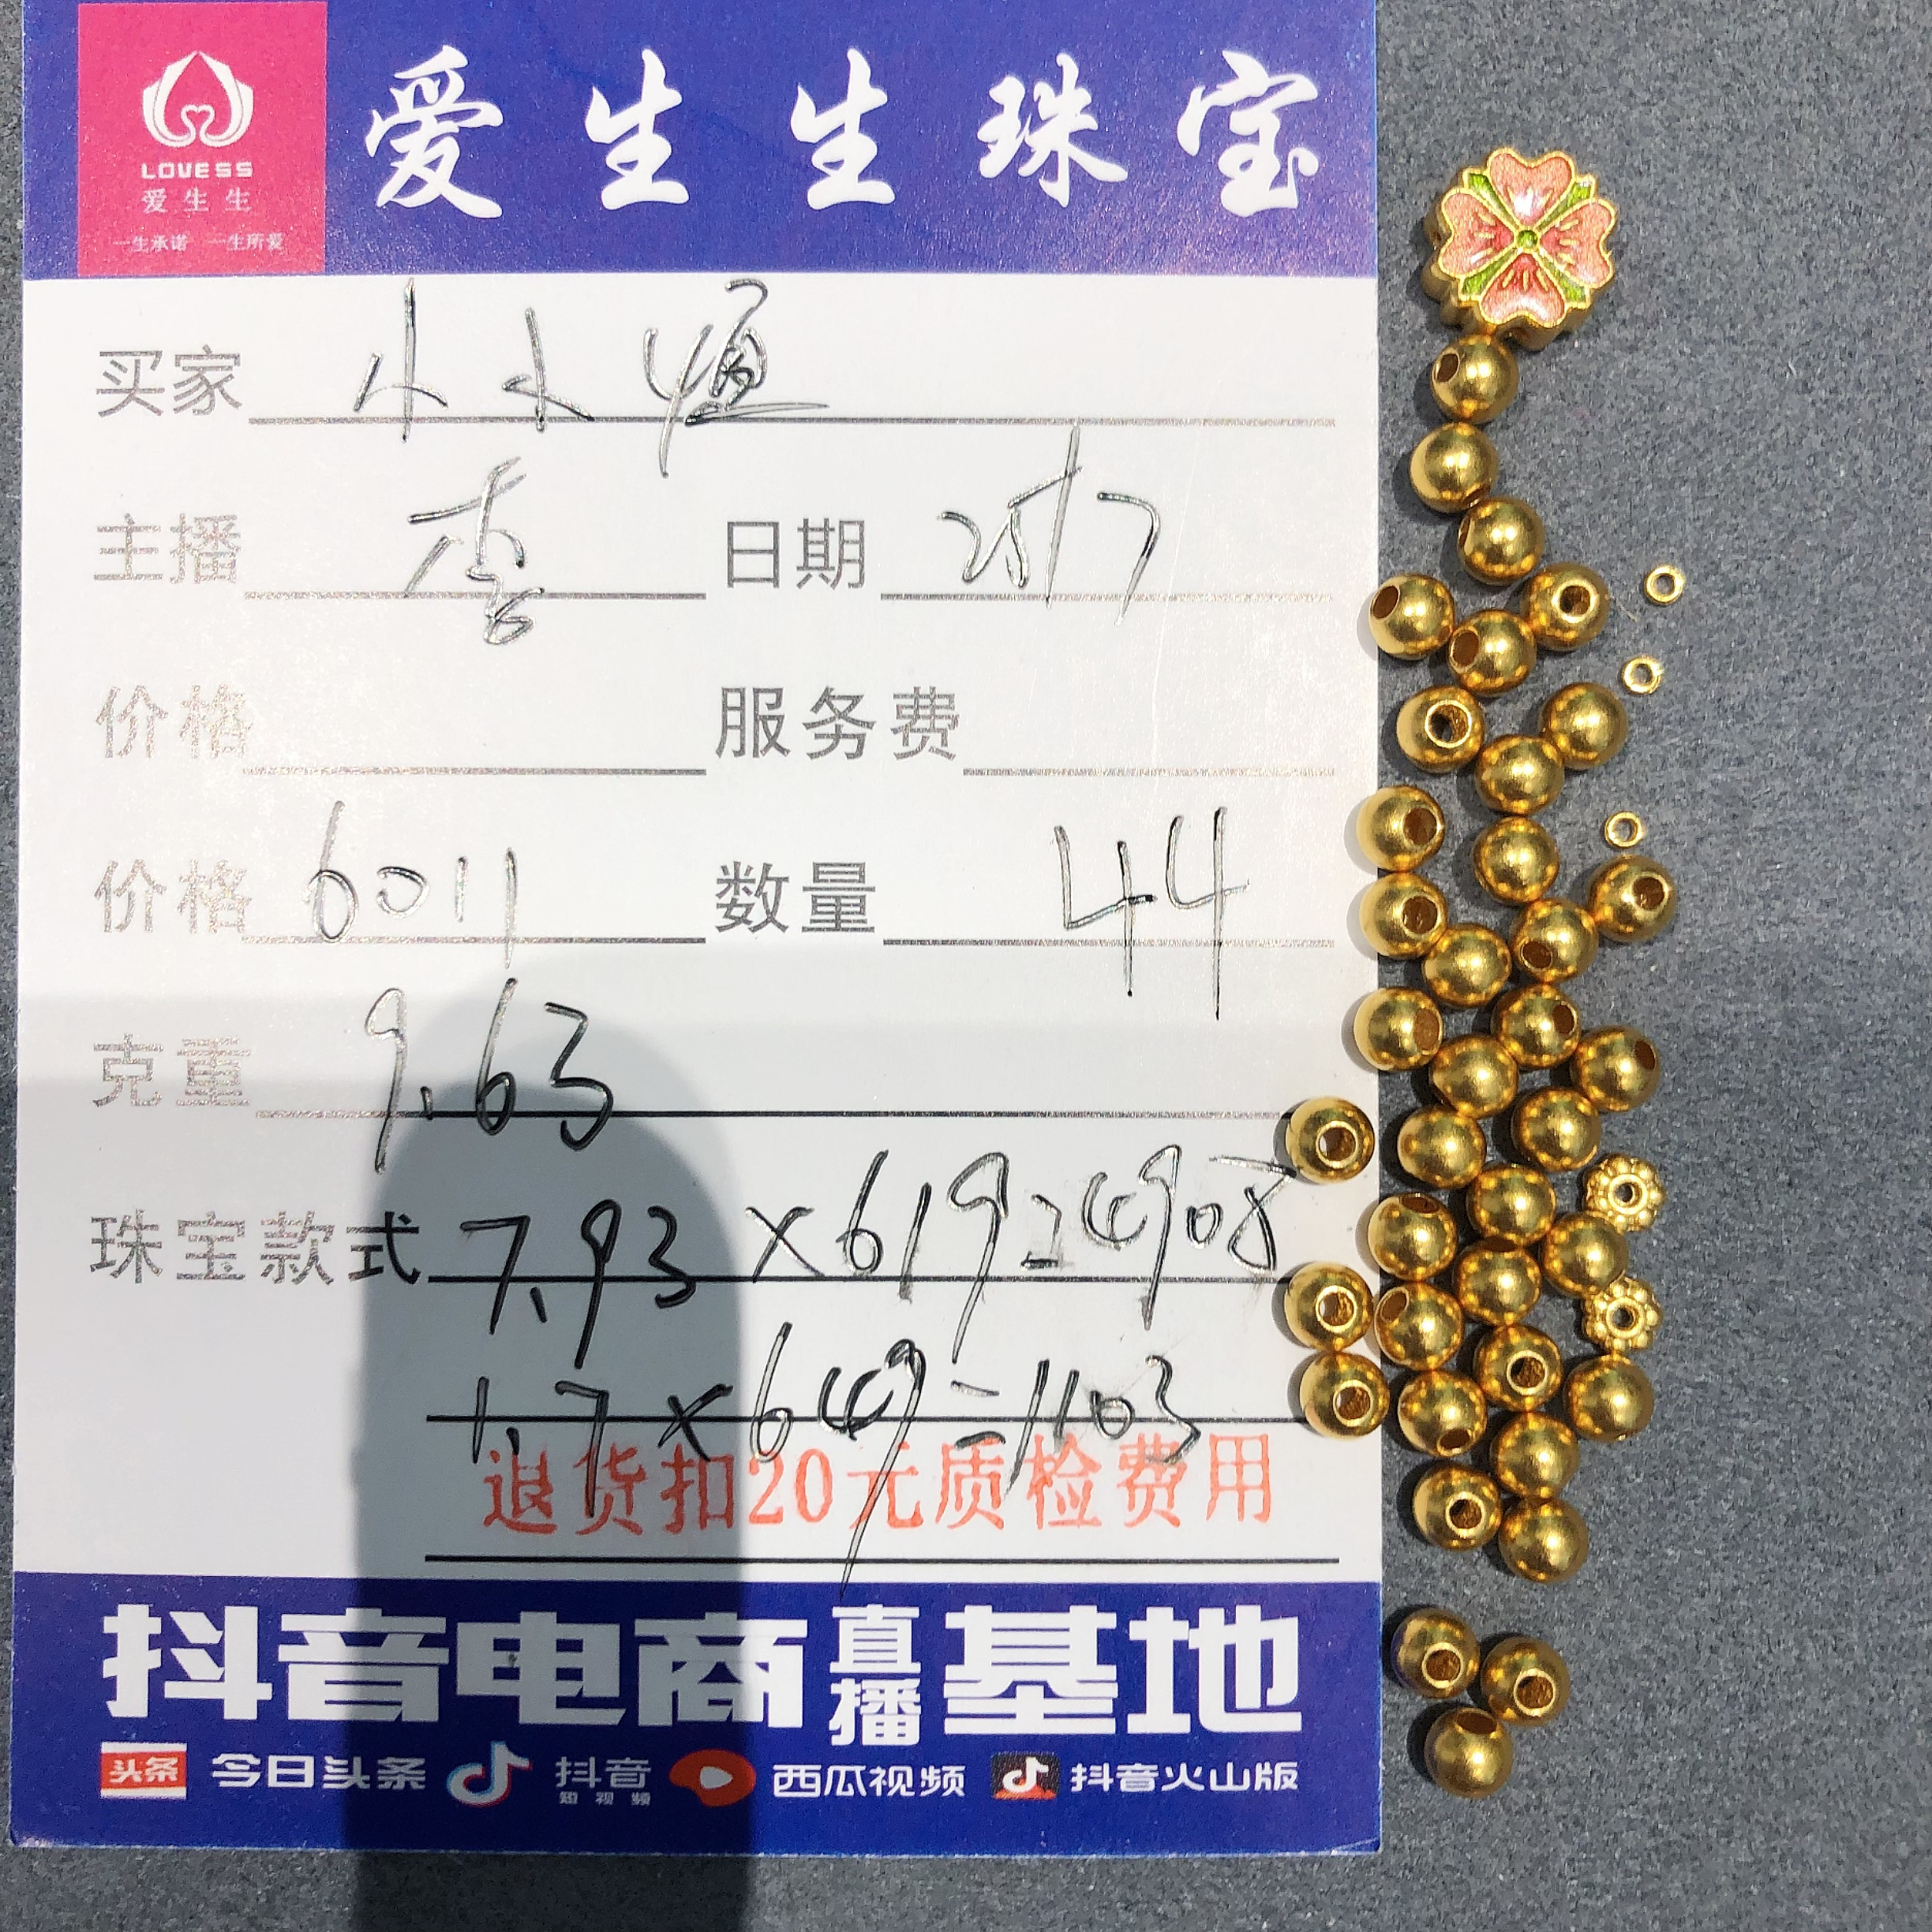 LOVESS
爱生生
一生承诺 一生所爱
爱生生珠宝
买家 小小恒
主播 日期
价格 服务费
价格 6011 数量 44
克重 9.63
珠宝款式 7.93×619=4908
1.7×649=1103
退货扣20元质检费用
抖音电商直播基地
头条 今日头条 抖音短视频 西瓜视频 抖音火山版